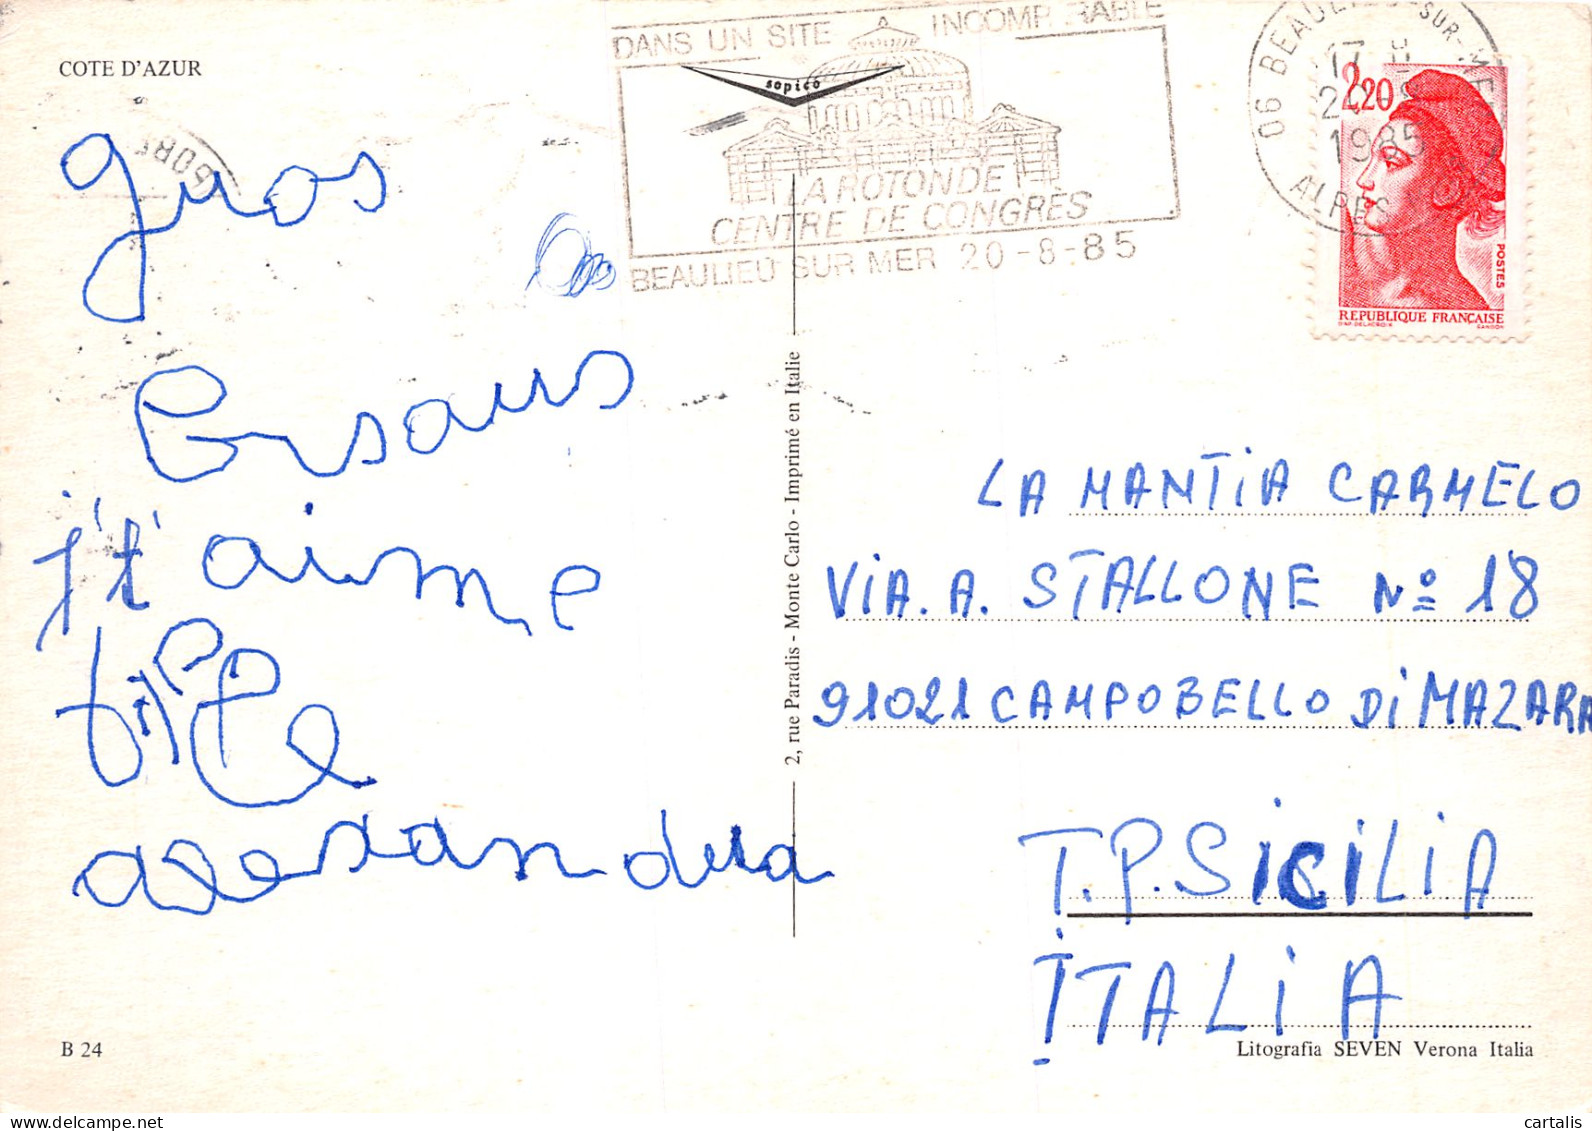 COTE D'AZUR
DANS UN SITE INCOMPARABLE
sopico
LA ROTONDE
CENTRE DE CONGRÈS
BEAULIEU SUR MER 20-8-85
06 BEAULIEU-SUR-MER
17 H
1985
ALPES
2,20
POSTES
REPUBLIQUE FRANÇAISE
D'AP. DELACROIX GANDON
gros
j't'aime
alexandra
2, rue Paradis - Monte Carlo - Imprimé en Italie
LA MANTIA CARMELO
VIA. A. STALLONE Nº 18
91021 CAMPOBELLO Di MAZARA
T.P. SICILIA
ITALIA
B 24
Litografia SEVEN Verona Italia
cartalis